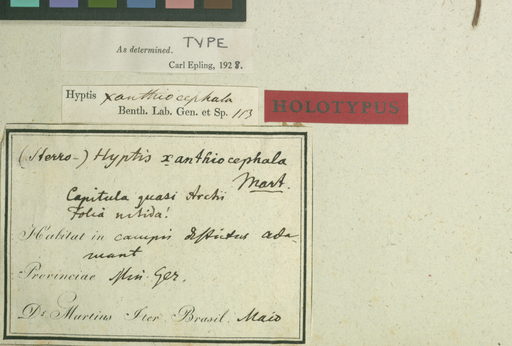 As determined. TYPE
Carl Epling, 1928.
Hyptis xanthiocephala
Benth. Lab. Gen. et Sp. 113
HOLOTYPUS
Hyptis xanthiocephala
Mart.
Capitula quasi Arctii
Folia nitida!
Habitat in campis districtus ada-
mant
Provinciae Min. Ger.
Dr. Martius Iter Brasil. Maio